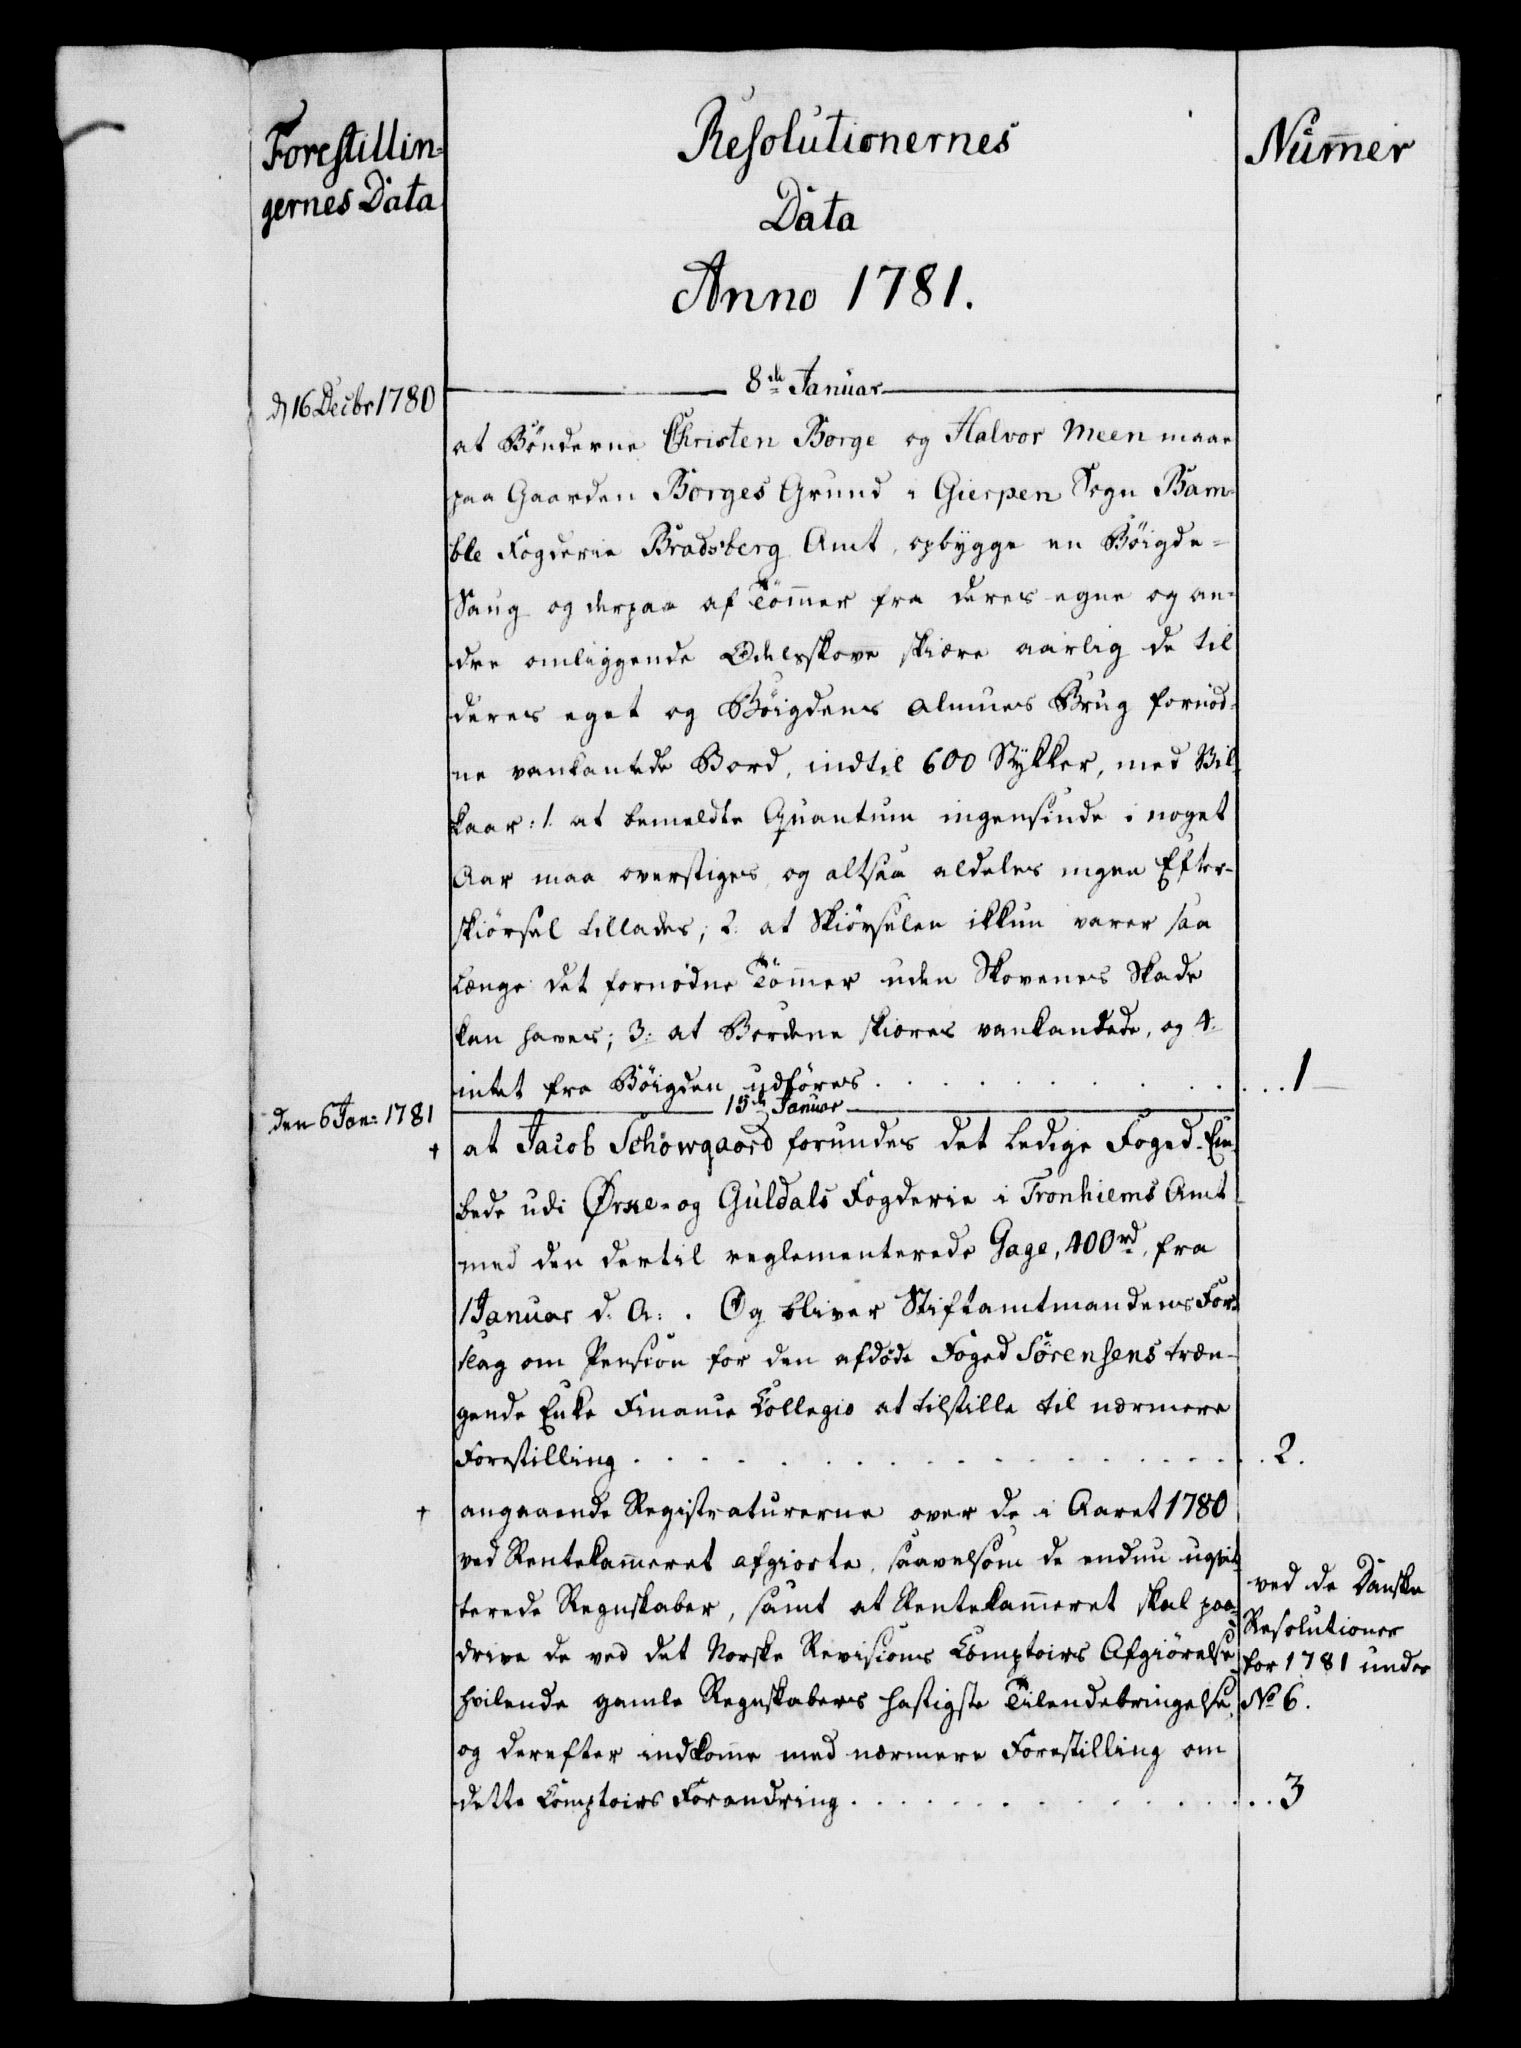 Forestillin-
gernes Data
Resolutionernes
Data
Anno 1781.
Num̅er
8de Januar
d 16 Decbr 1780
at Bønderne Christen Borge og Halvor Meen maae
paa Gaarden Borges Grund i Gierpen Sogn Bam-
ble Fogderie Bradsberg Amt, opbygge en Böigde-
Saug og derpaa af Töm̅er fra deres egne og an-
dre omliggende Odelsskove skiære aarlig de til
deres eget og Böigdens Almues Brug fornöd-
ne vankantede Bord, indtil 600 Stykker, med Vil-
kaar: 1. at bemeldte Quantum ingensinde i noget
Aar maa overstiges, og altsaa aldeles ingen Efter-
skiörsel tillades; 2. at Skiörselen ikkun varer saa
længe det fornødne Töm̅er uden Skovenes Skade
kan haves; 3: at Bordene skiæres vankandede, og 4:
intet fra Böigden udföres . . . . . . . . . . 1
15de Januar
den 6 Jan: 1781
† at Jacob Schowgaard forundes det ledige Foged-Em-
bede udi Örke- og Guldals Fogderie i Tronhiems Amt
med den dertil reglementerede Gage, 400 rd, fra
1 Januar d. A: . Og bliver Stiftamtmandens For-
slag om Pension for den afdøde Foged Sörensens træn-
gende Enke Finance Collegio at tilstille til nærmere
Forestilling . . . . . . . . . . 2.
† angaaende Registraturerne over de i Aaret 1780
ved Rentekam̅eret afgiorte, saavelsom de endnu uqvit-
terede Regnskaber, samt at Rentekam̅eret skal paa-
drive de ved det Norske Revisions Comptoirs Afgiörelse
hvilende gamle Regnskabers hastigste Tilendebringelse,
og derefter indkom̅e med nærmere Forestilling om
dette Comptoirs Forandring . . . . . . . . . . 3
ved de Danske
Resolutioner
for 1781 under
No 6.